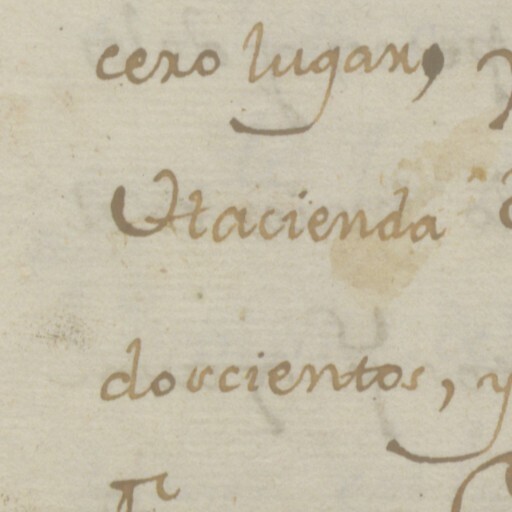 cero lugar, y
Hacienda
doscientos, y